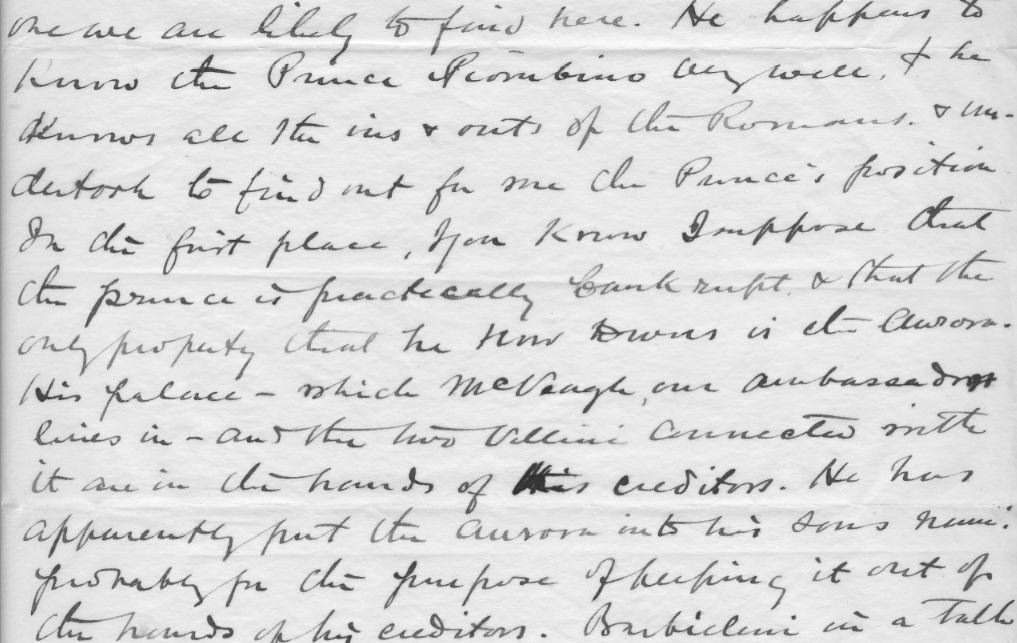 one we are likely to find here. He happens to
know the Prince Piombino very well, & he
knows all the ins & outs of the Romans. & un-
dertook to find out for me the Prince's position
In the first place, you know I suppose that
the prince is practically bankrupt. & that the
only property that he now owns is the Aurora.
His palace - which McVeagh, our ambassador
lives in - and the two Villini connected with
it are in the hands of his creditors. He has
apparently put the Aurora into his sons name.
probably for the purpose of keeping it out of
the hands of his creditors. Barbielini in a talk